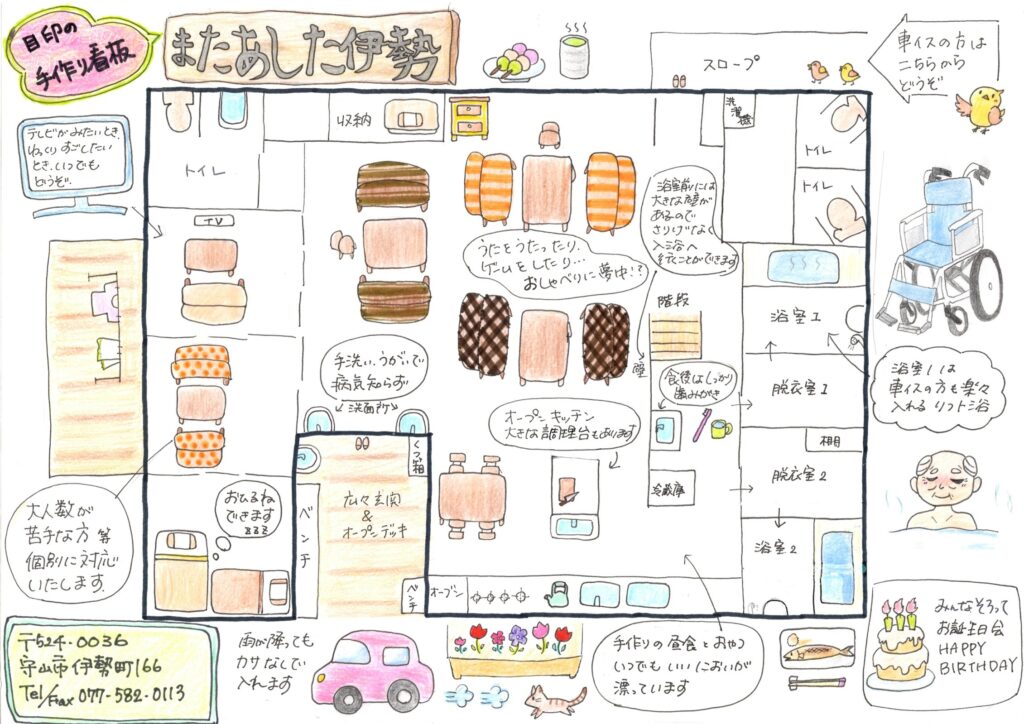 目印の
手作り看板
またあした伊勢
スロープ
車イスの方は
こちらから
どうぞ
テレビがみたいとき、
ゆっくりすごしたい
とき、いつでも
どうぞ。
トイレ
収納
洗濯機
トイレ
トイレ
TV
浴室前には
大きな壁が
あるので
さりげなく
入浴へ
行くことができます
うたをうたったり、
ゲームをしたり…
おしゃべりに夢中!?
階段
壁
浴室1
手洗い、うがいで
病気知らず
洗面所
食後はしっかり
歯みがき
脱衣室1
浴室1は
車イスの方も楽々
入れるリフト浴
オープンキッチン
大きな調理台もあります
くつ箱
棚
脱衣室2
冷蔵庫
大人数が
苦手な方等
個別に対応
いたします。
おひるね
できます
zzz
ベンチ
広々玄関
&
オープンデッキ
浴室2
ベンチ
オーブン
〒524-0036
守山市伊勢町166
Tel/Fax 077-582-0113
雨が降っても
カサなしで
入れます
手作りの昼食とおやつ
いつでもいいにおいが
漂っています
みんなそろって
お誕生日会
HAPPY
BIRTHDAY